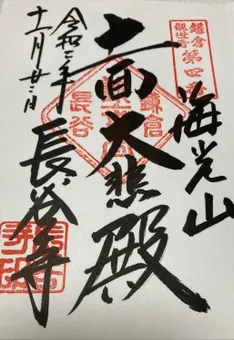 鎌倉
観世音
第四番
海光山
十一面大悲殿
鎌倉
長谷
長谷寺
令和三年
十一月廿三日